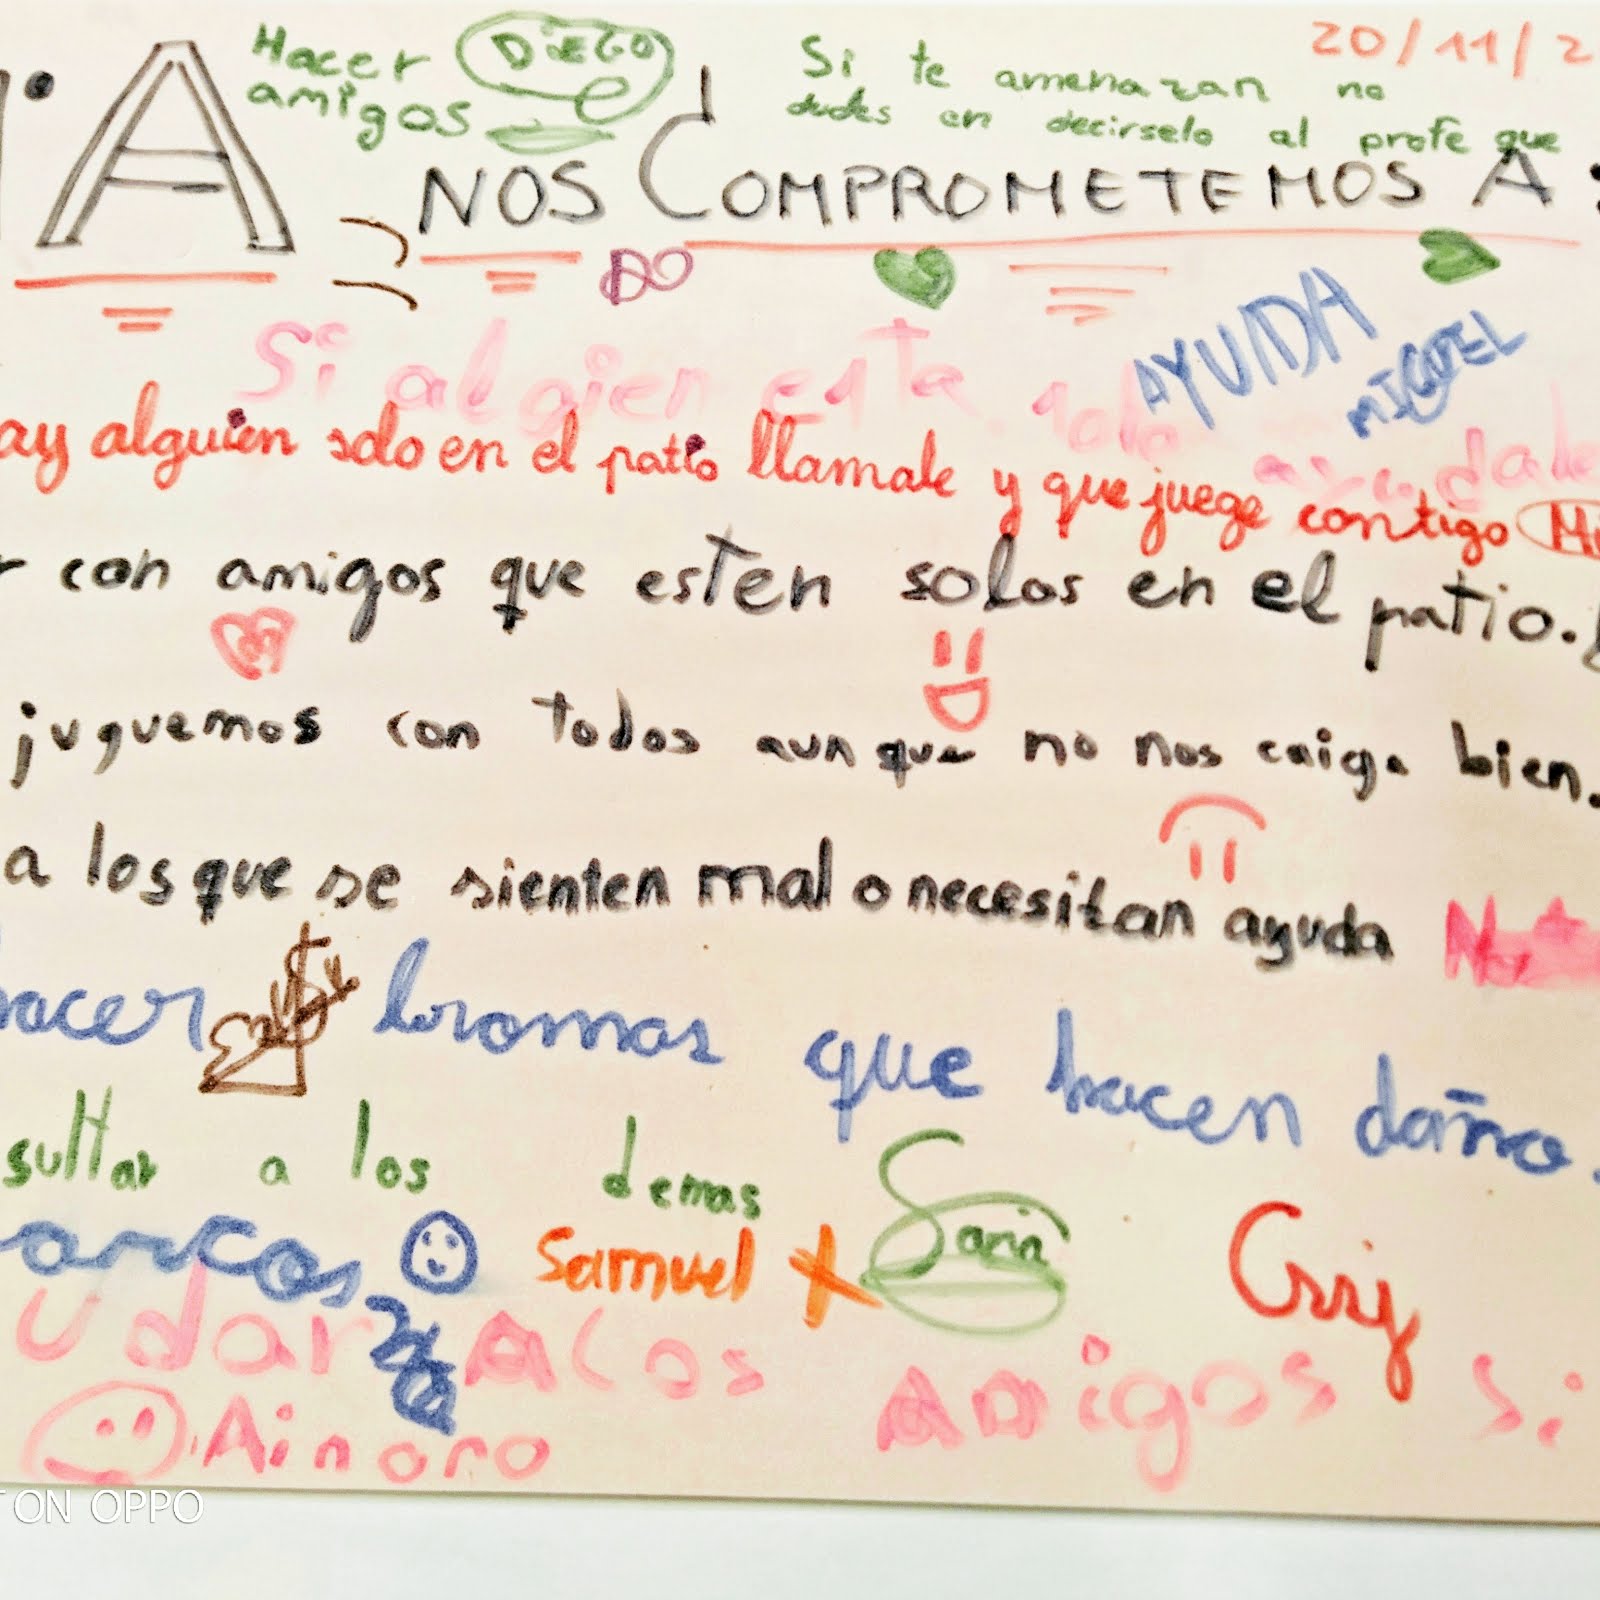 Hacer DIEGO
amigos
Si te amenazan no
dudes en decirselo al profe que
20/11/2
A NOS COMPROMETEMOS A:
AYUDA
MIGUEL
Si algien esta sola ayudale
ay alguien solo en el patio llamale y que juege contigo Mi
r con amigos que esten solos en el patio.
juguemos con todos aunque no nos caiga bien.
a los que se sienten mal o necesitan ayuda
hacer bromas que hacen daño.
sultar a los demas
arcos Samuel Saria
udar A los Amigos Si
Ainoro
T ON OPPO